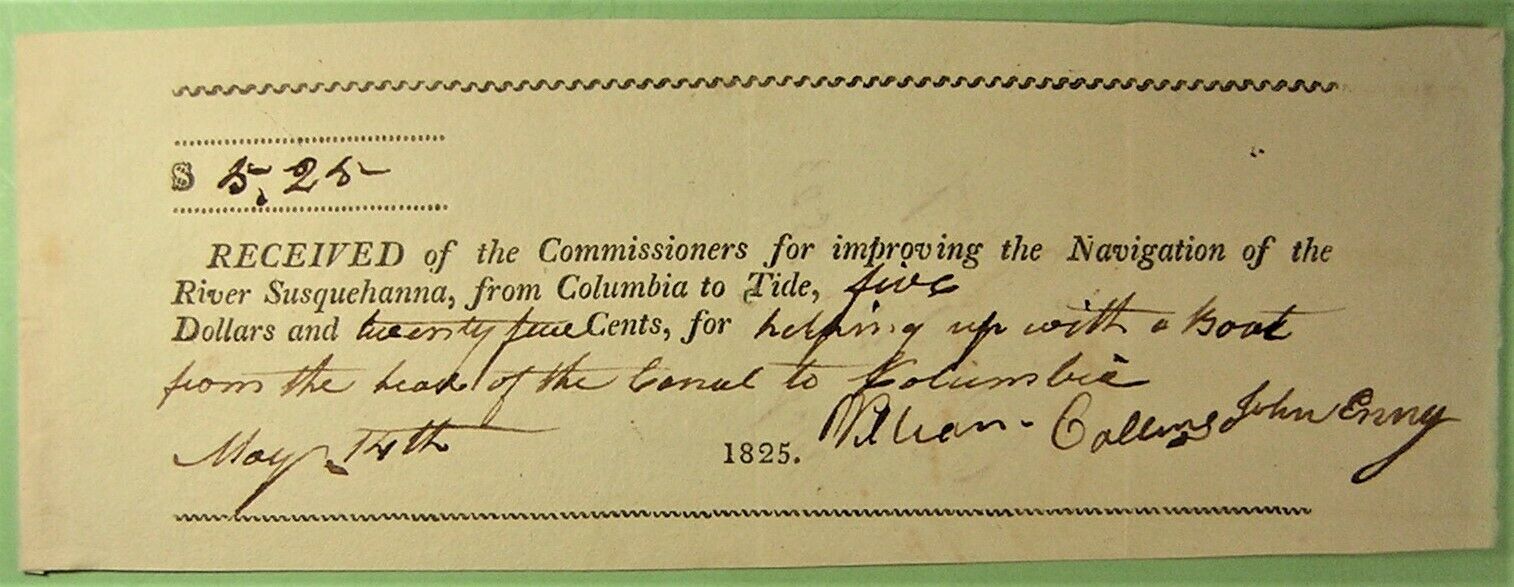 $ 5.25
RECEIVED of the Commissioners for improving the Navigation of the
River Susquehanna, from Columbia to Tide, five
Dollars and twenty five Cents, for helping up with a Boat
from the head of the Canal to Kolumbia
May 14th 1825. William Collins John Enny